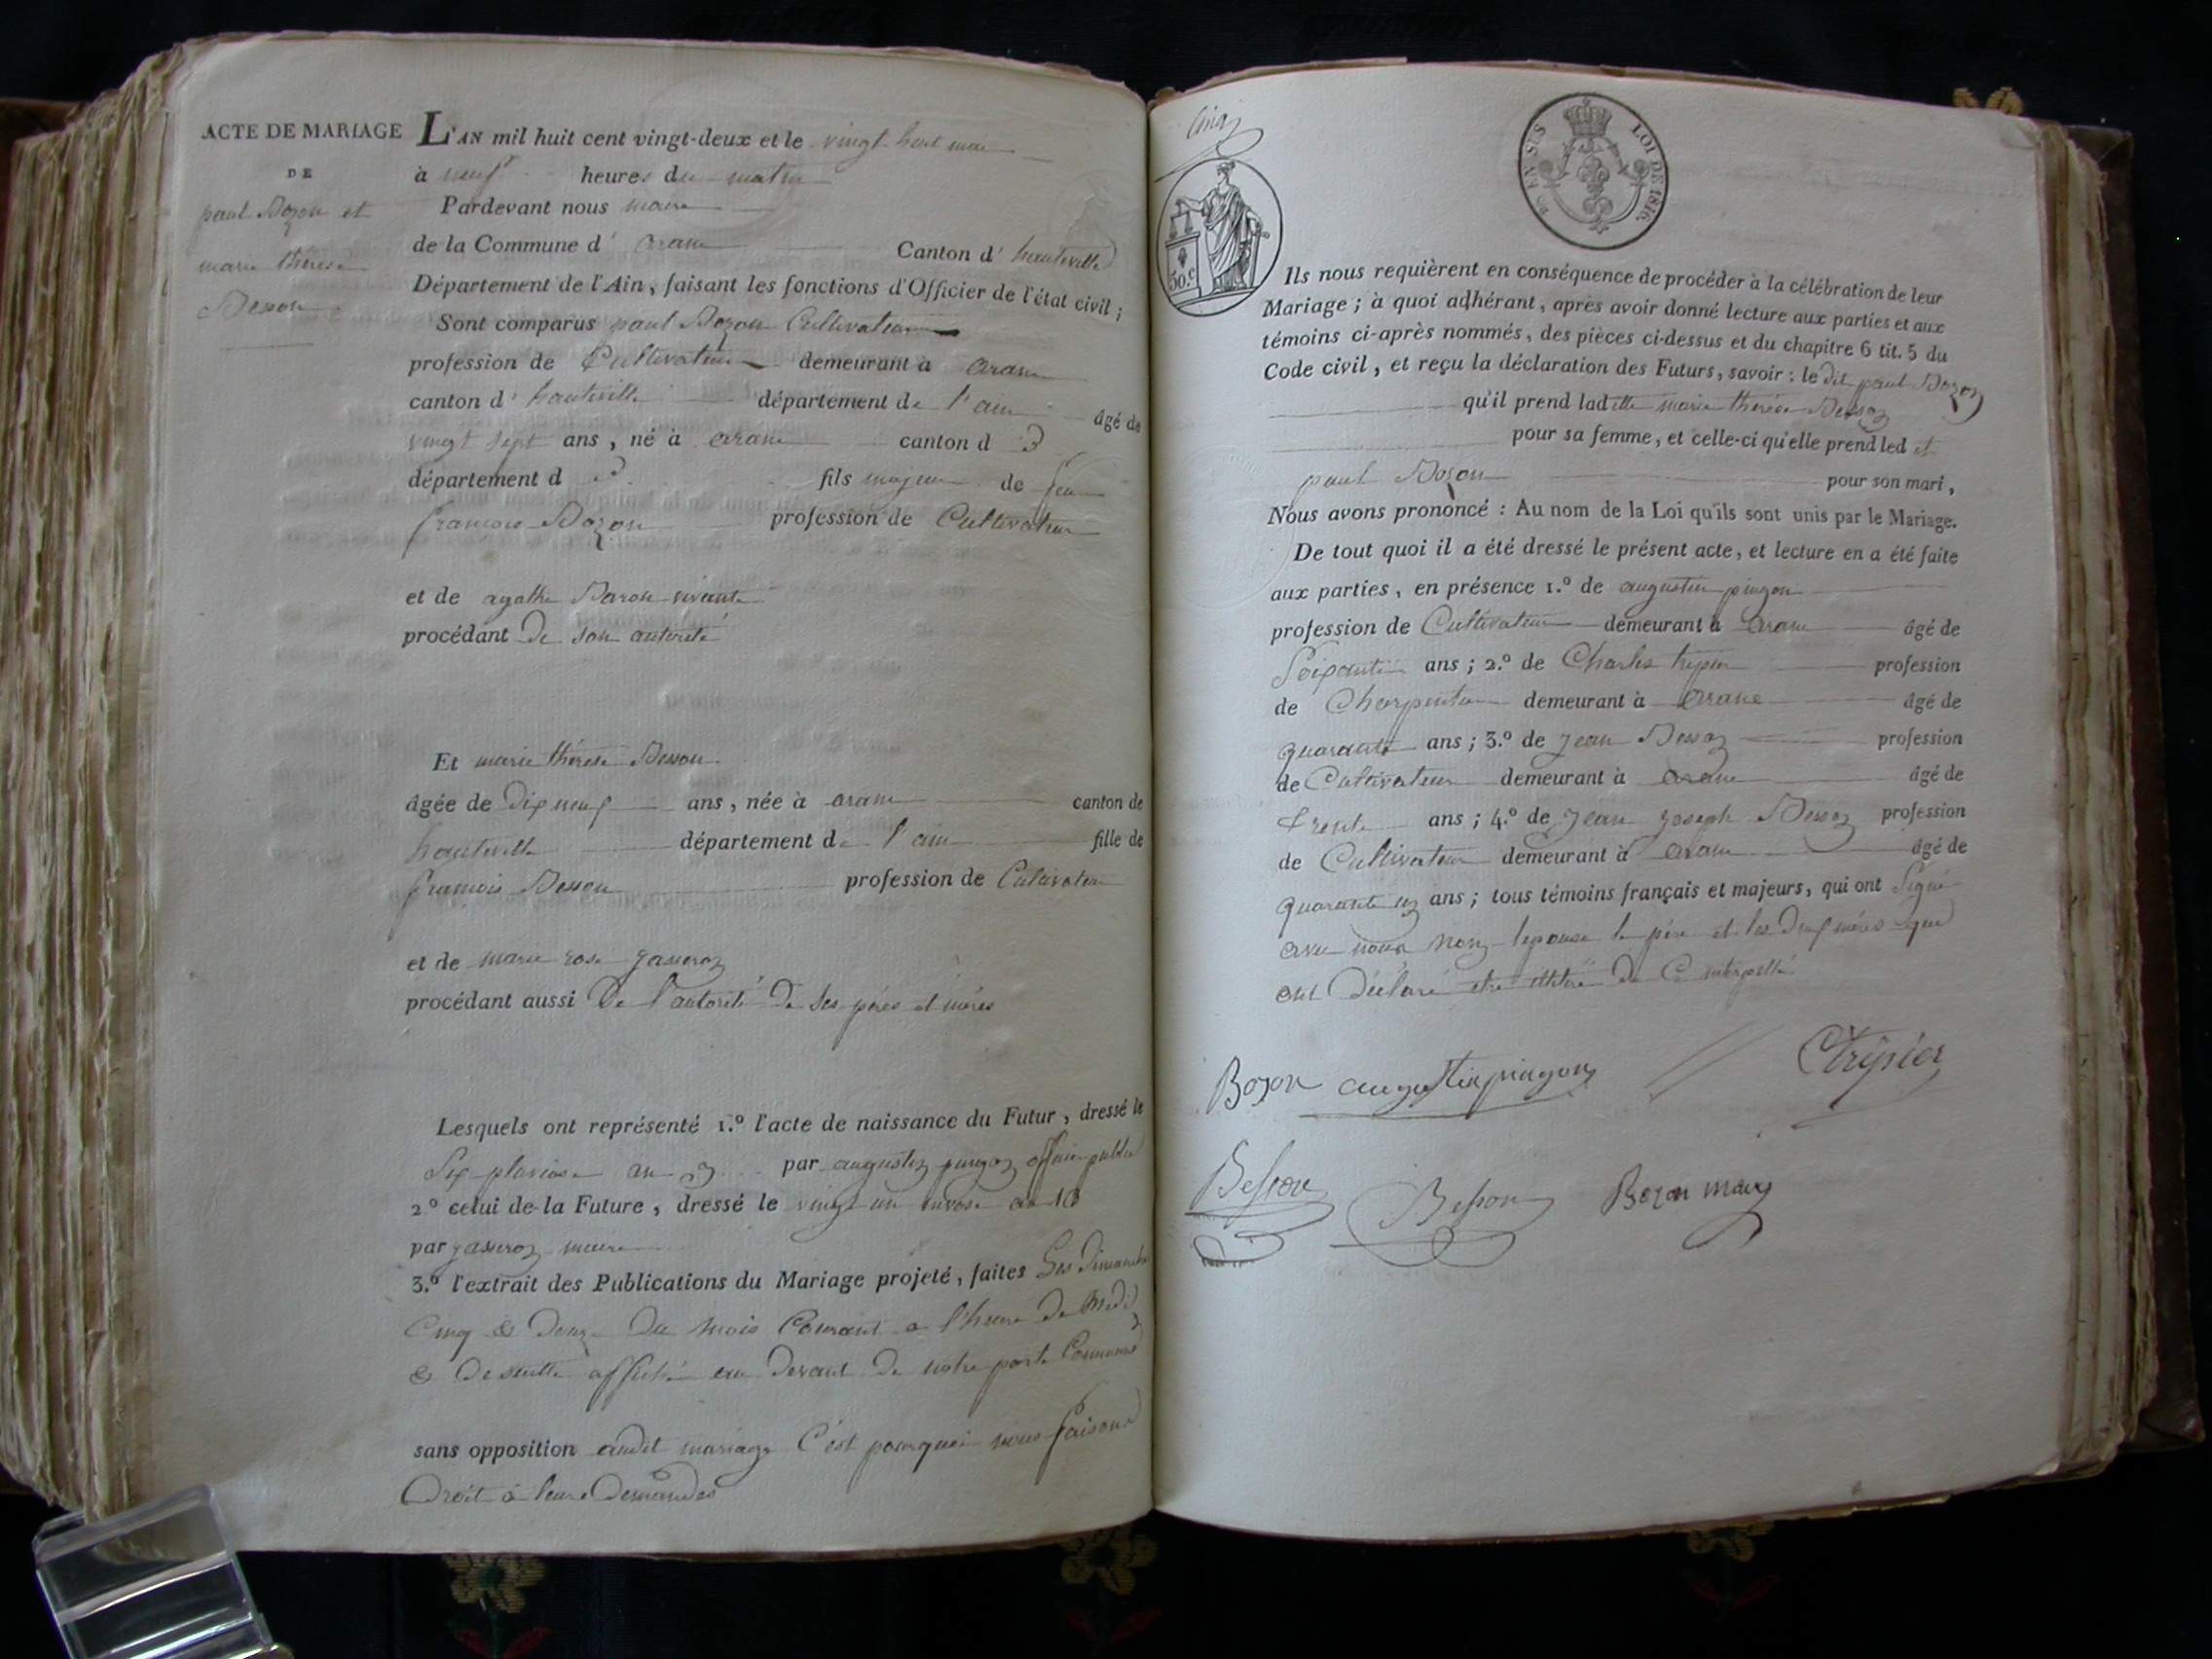 ACTE DE MARIAGE
DE
paul Bozon et
marie thérèse
Besson
L'AN mil huit cent vingt-deux et le vingt huit mai
à neuf heures du matin
Pardevant nous maire
de la Commune d' arane Canton d' hauteville
Département de l'Ain, faisant les fonctions d'Officier de l'état civil;
Sont comparus paul Bozon Cultivateur
profession de Cultivateur demeurant à arane
canton d' hauteville département de l'ain âgé de
vingt sept ans, né à arane canton d
département d fils majeur de feu
francois Bozon profession de Cultivateur
et de agathe Baron vivante
procédant De son autorité
Et marie thérèse Besson
âgée de Dix neuf ans, née à arane canton de
hauteville département de l'ain fille de
francois Besson profession de Cultivateur
et de marie rose gasseroz
procédant aussi De l'autorité De ses pères et mères
Lesquels ont représenté 1.º l'acte de naissance du Futur, dressé le
Six pluviose an 3 par augustin pingon officier public
2º celui de la Future, dressé le vingt un nivose an 10
par gasseroz maire
3.º l'extrait des Publications du Mariage projeté, faites Les Dimanche
Cinq & Douze Du mois Courant a l'heure De Midi
& De suitte affiché au Devant De notre porte Commune
sans opposition audit mariage C'est pourquoi nous faisons
Droit à leurs Demandes
50.c
EN SUS LOI DE 1816.
Ils nous requièrent en conséquence de procéder à la célébration de leur
Mariage; à quoi adhérant, après avoir donné lecture aux parties et aux
témoins ci-après nommés, des pièces ci-dessus et du chapitre 6 tit. 5 du
Code civil, et reçu la déclaration des Futurs, savoir: le dit paul Bozon
qu'il prend laditte marie thérèse Besson
pour sa femme, et celle-ci qu'elle prend led it
paul Bozon pour son mari,
Nous avons prononcé: Au nom de la Loi qu'ils sont unis par le Mariage.
De tout quoi il a été dressé le présent acte, et lecture en a été faite
aux parties, en présence 1.º de augustin pingon
profession de Cultivateur demeurant à arane âgé de
Soixante ans; 2.º de Charles tripier profession
de Charpentier demeurant à arane âgé de
quarante ans; 3.º de jean Besson profession
de Cultivateur demeurant à arane âgé de
trente ans; 4.º de jean joseph Besson profession
de Cultivateur demeurant à arane âgé de
quarante ans; tous témoins français et majeurs, qui ont Signé
avec nous non lepouse le père et les Deux mères que
ont Déclaré etre illitéré De C interpellé
Bozon augustin pingon Ctripier
Besson Besson Bozon maire